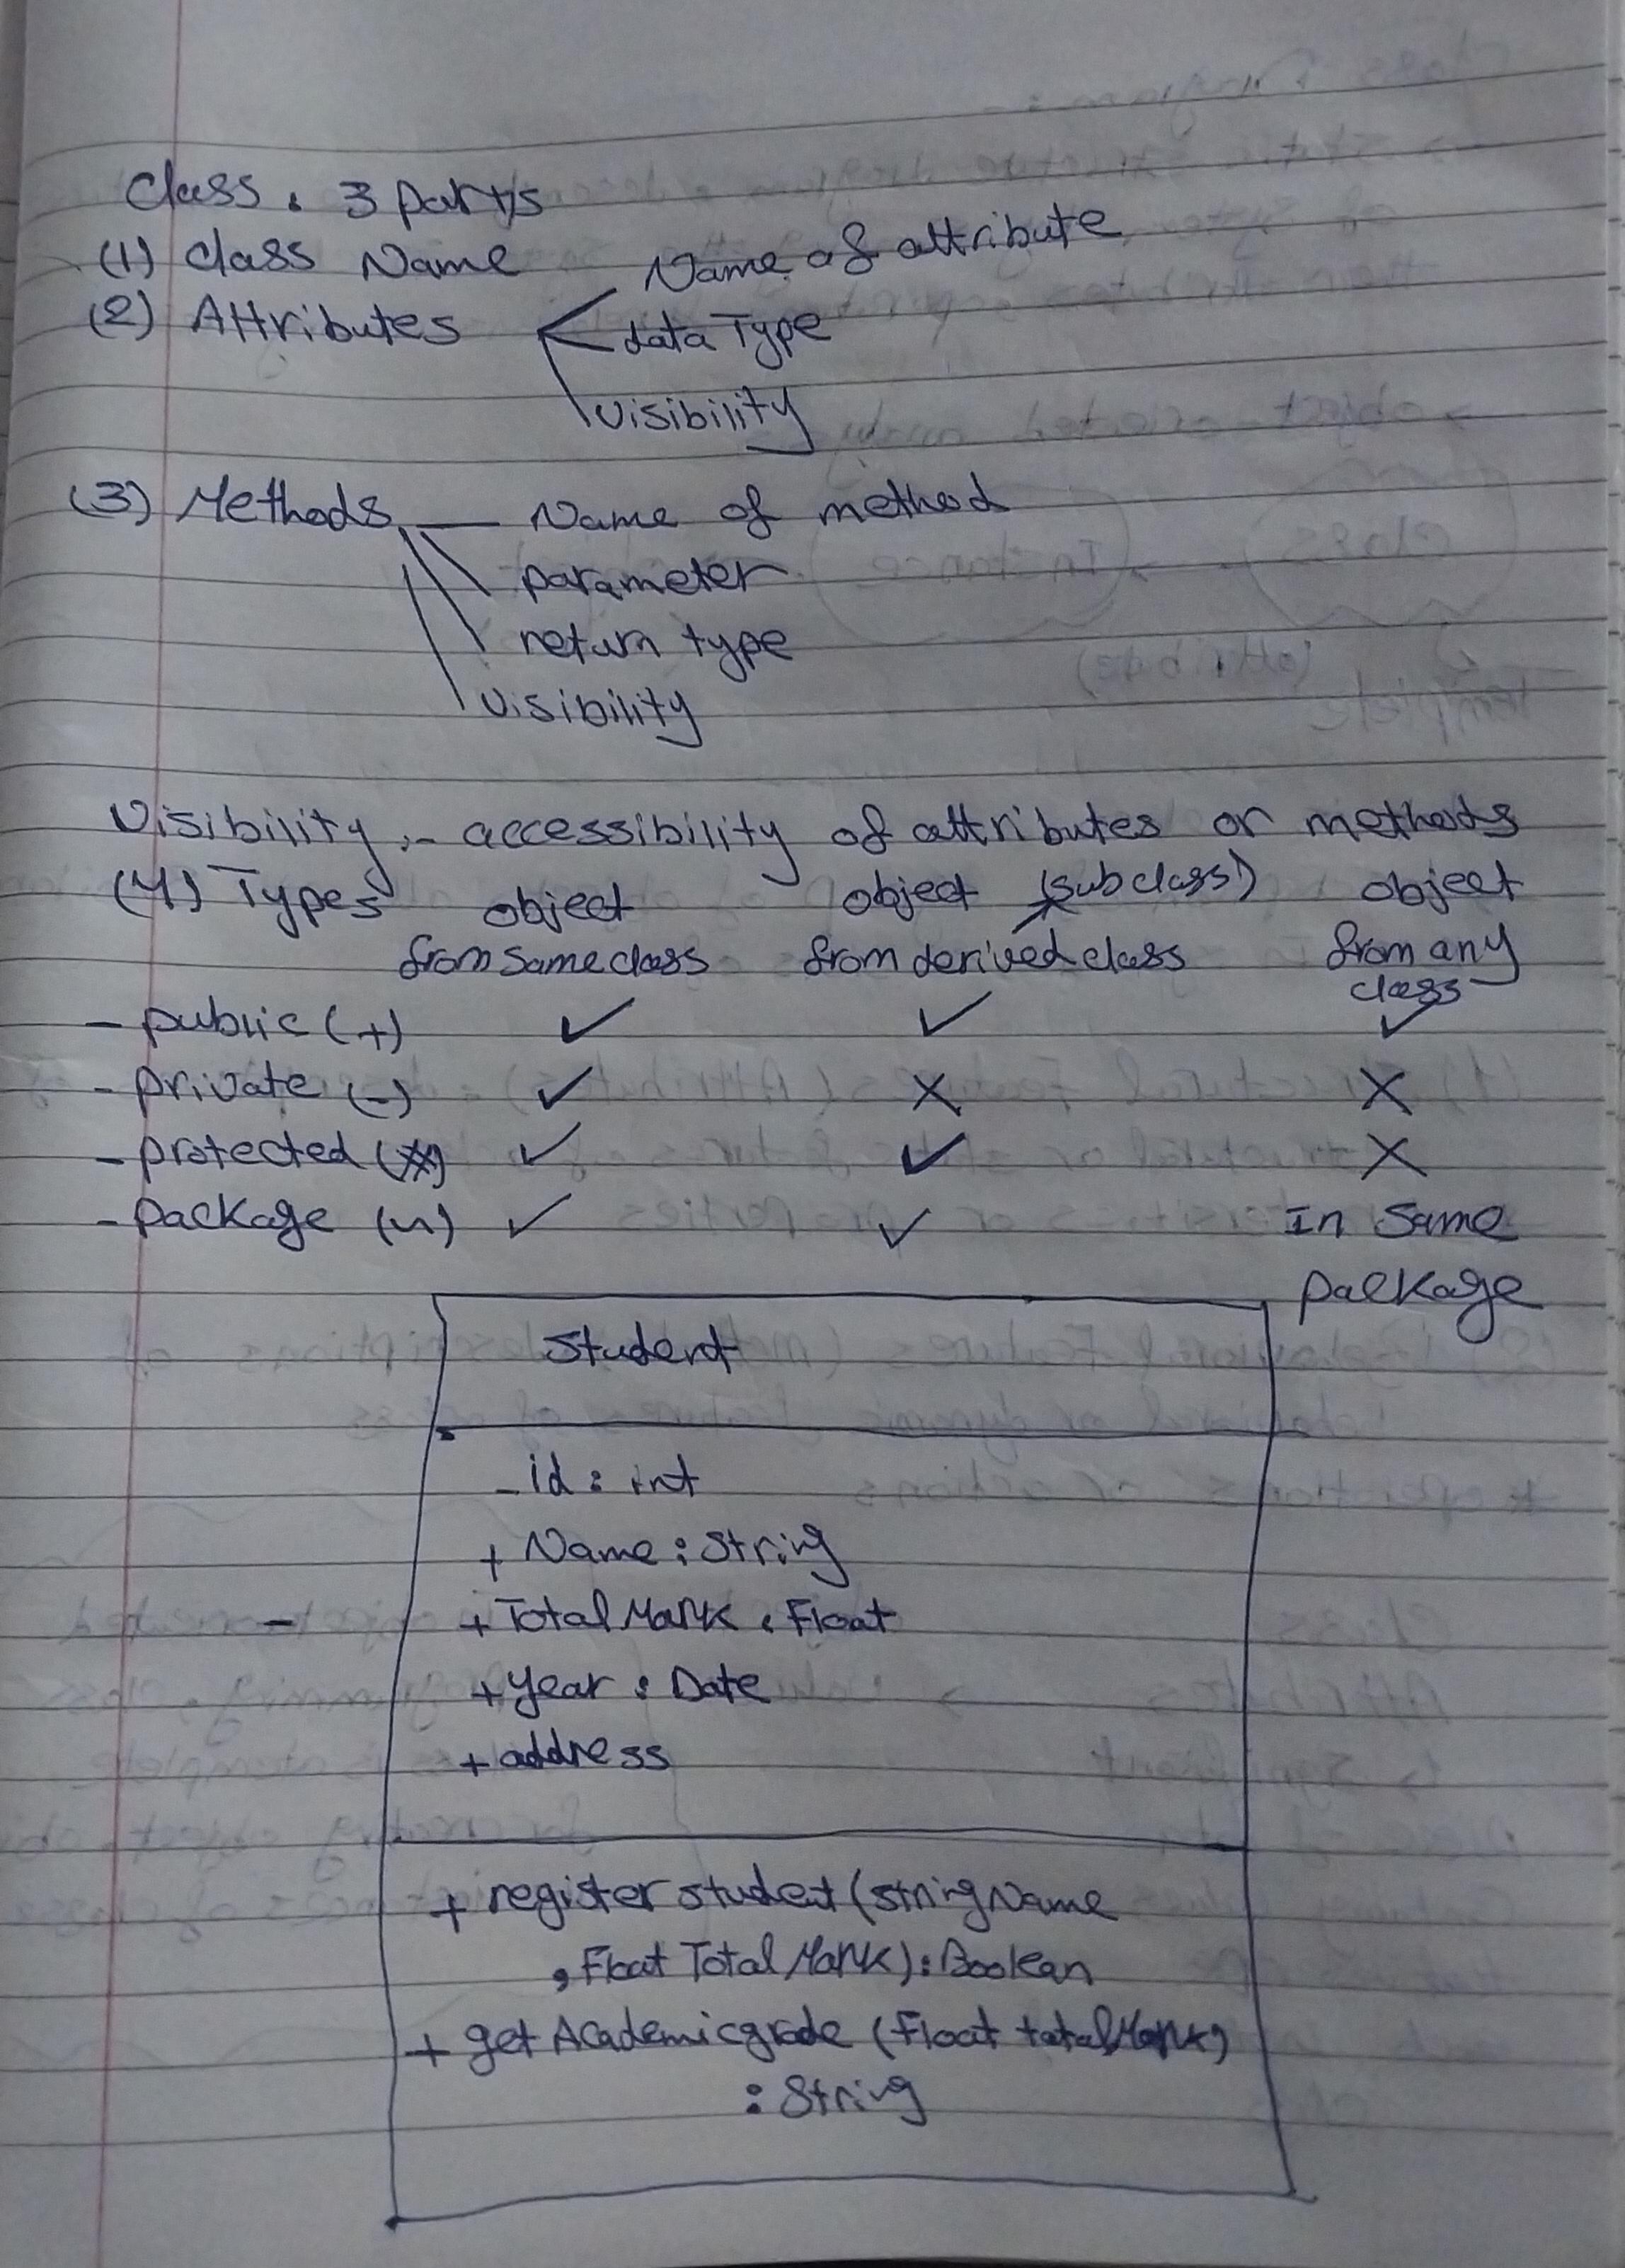 Class : 3 parts
(1) Class Name
Name of attribute
(2) Attributes
data Type
Visibility
(3) Methods — Name of method
parameter
return type
Visibility
Visibility :- accessibility of attributes or methods
(4) Types object object (subclass) object
from same class from derived class from any
class
- public (+) ✓ ✓ ✓
- private (-) ✓ X X
- protected (#) ✓ ✓ X
- package (~) ✓ ✓ In Same
package
Student
- id : int
+ Name : String
- + Total Mark : Float
+ year : Date
+ address
+ register student (string Name
, Float Total Mark) : Boolean
+ get Academic grade (Float total Mark)
: String